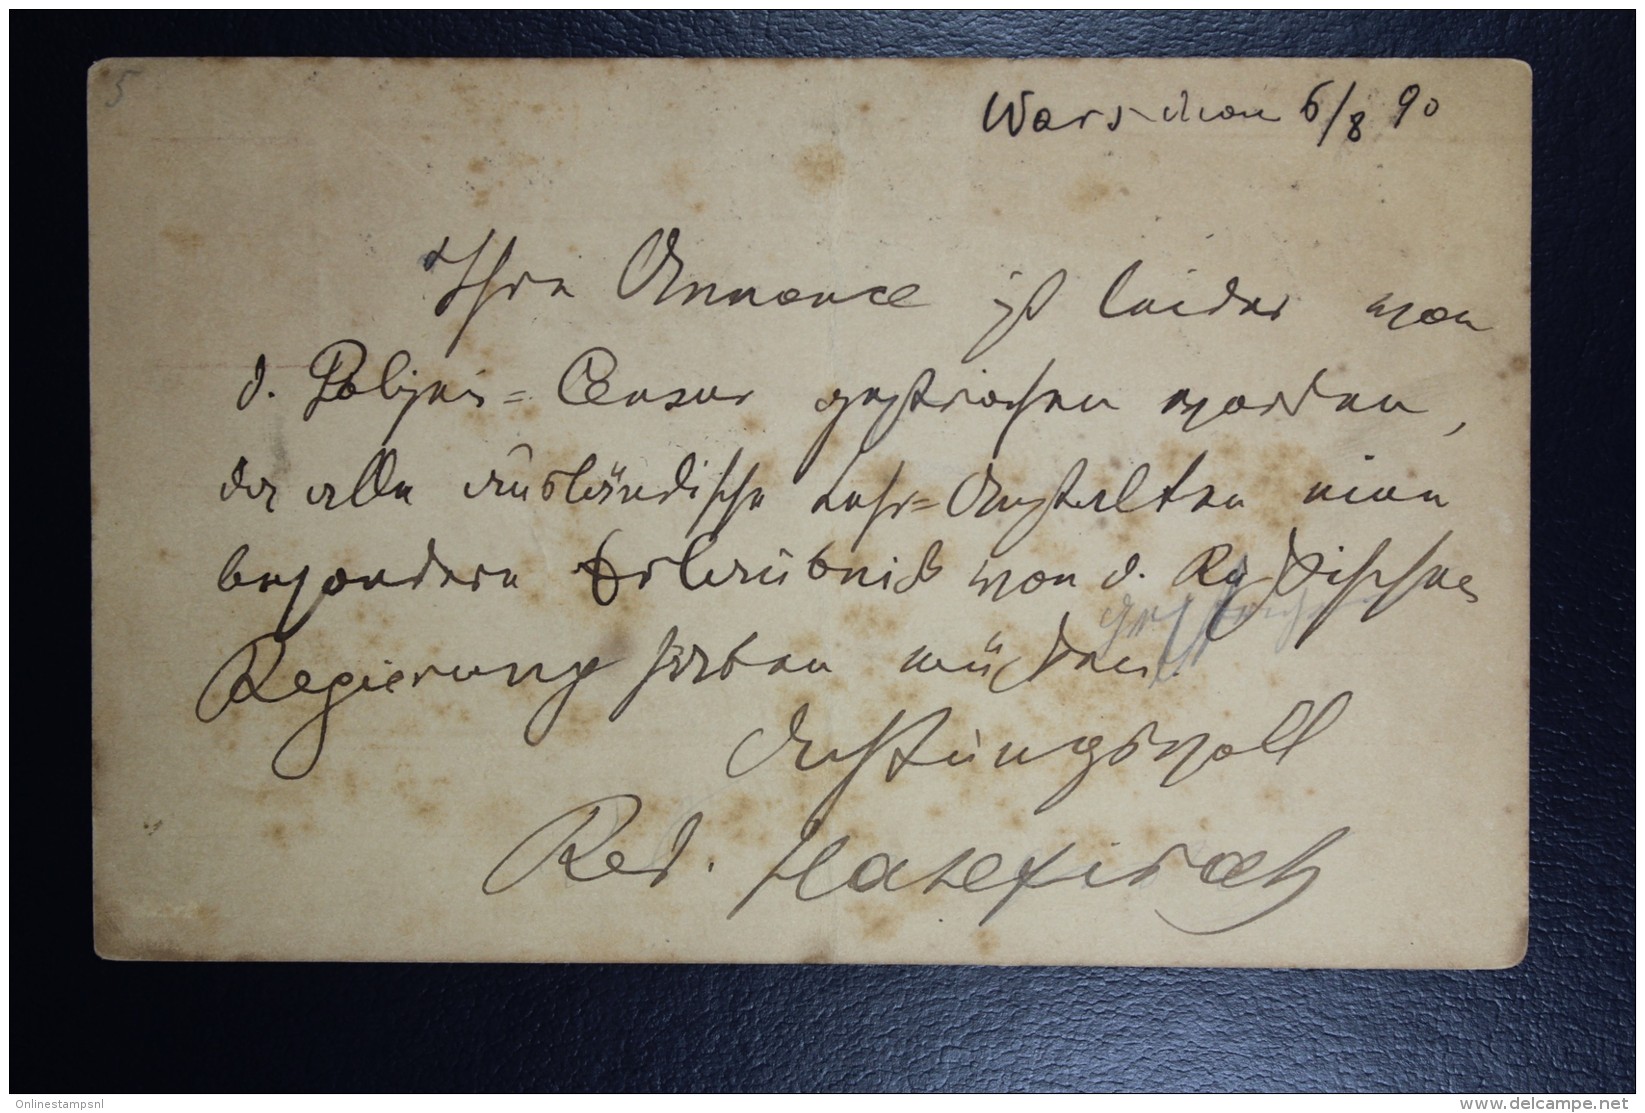 5
Warschau 6/8 90
Ihre Annonce ist leider von
d. Polizei=Censur gestrichen worden,
da alle ausländische Lehr=Anstalten eine
besondere Erlaubniß von d. Russischen
gestrichen
Regierung haben müssen.
Achtungsvoll
Red. Hazefirah
Onlinestampsnl
www.delcampe.net